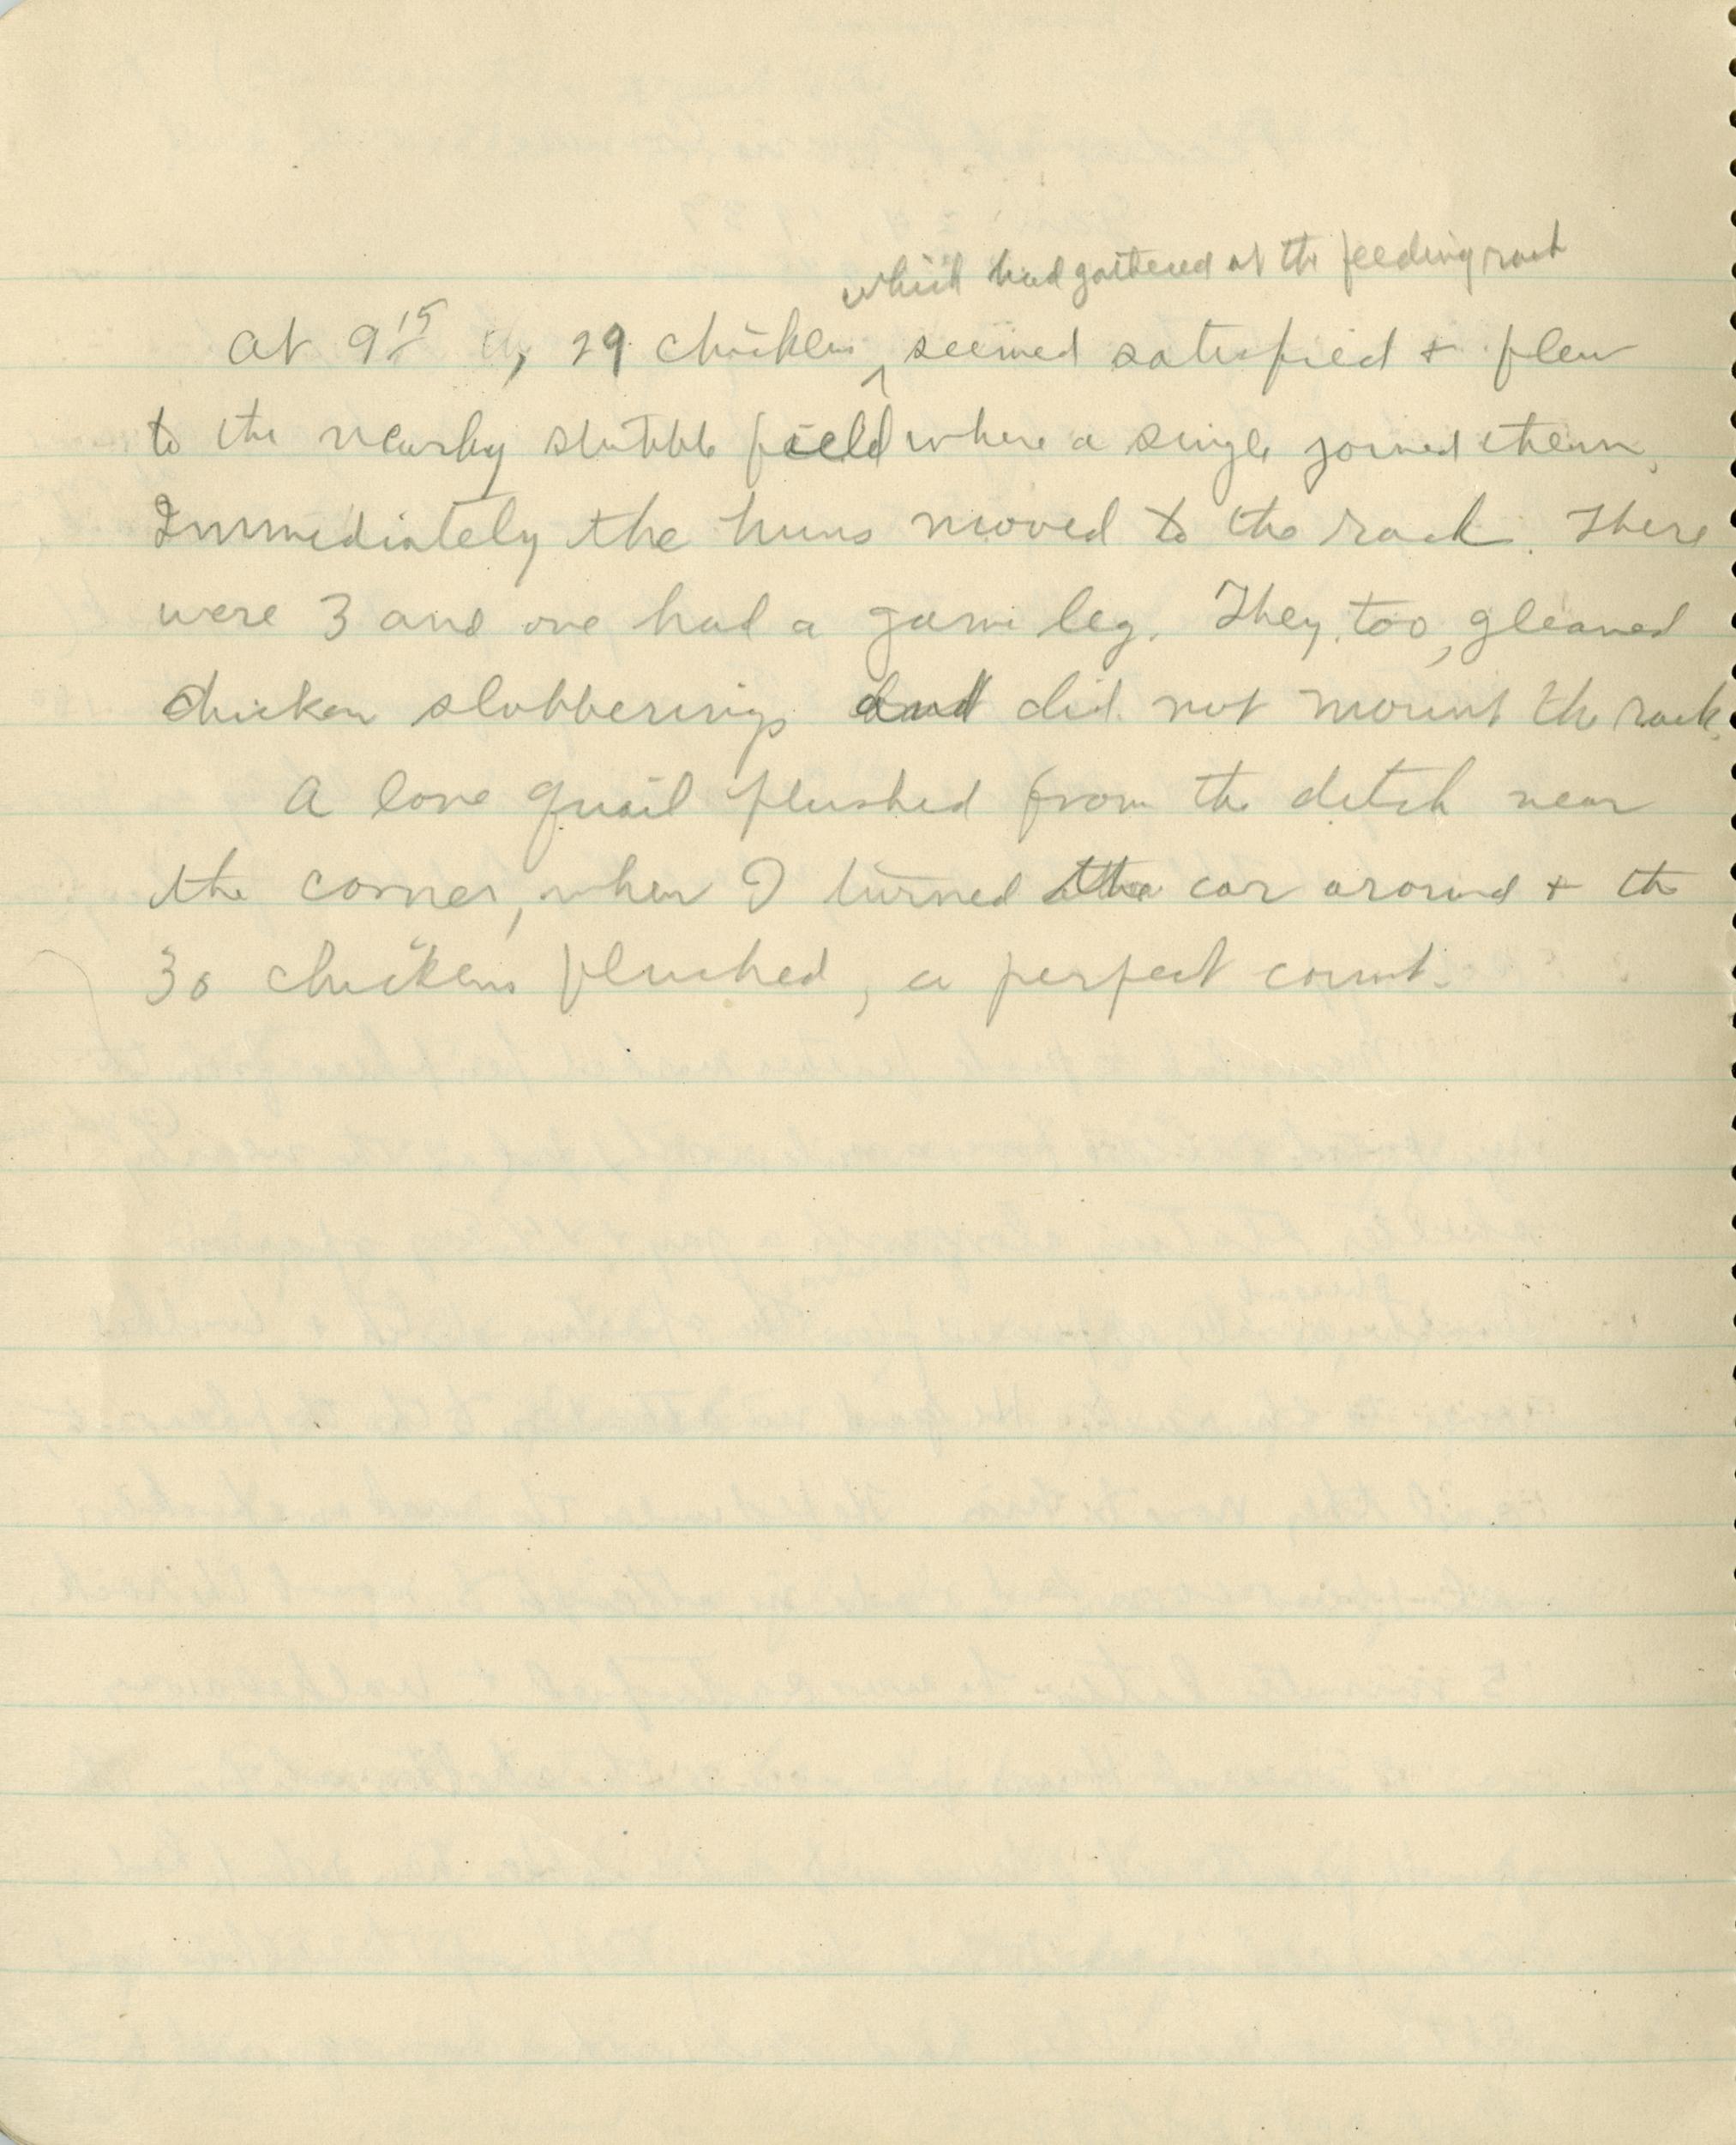 which had gathered at the feeding rack
At 9 15, 29 chickens ^ seemed satisfied + flew
to the nearby stubble field where a single joined them.
Immediately the huns moved to the rack. There
were 3 and one had a game leg. They, too, gleaned
chicken slobberings and did not mount the rack.
A lone quail flushed from the ditch near
the corner, when I turned the car around + the
30 chickens flushed, a perfect count.